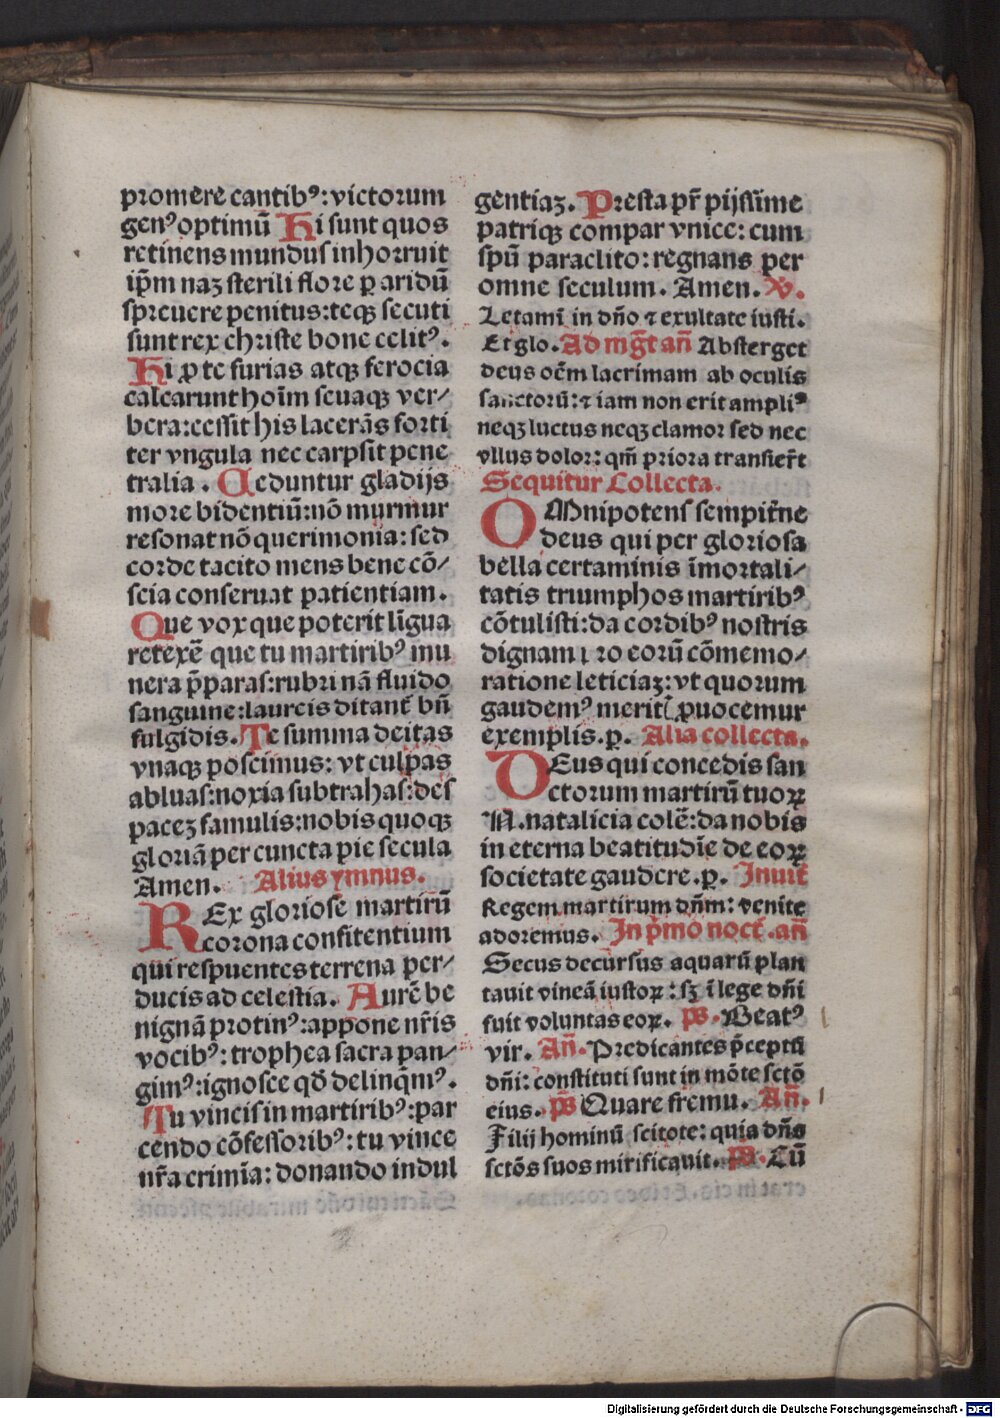 promere cantibꝰ: victorum
genꝰ optimū Hi sunt quos
retinens mundus inhorruit
ip̄m naꝫ sterili flore ꝑ aridū
spreuere penitus: teqꝫ secuti
sunt rex christe bone celitꝰ.
Hi ꝓ te furias atqꝫ ferocia
calcarunt hoīm seuaqꝫ ver/
bera: cessit his lacerās forti
ter vngula nec carpsit pene
tralia. Ceduntur gladijs
more bidentiū: nō murmur
resonat nō querimonia: sed
corde tacito mens bene cō/
scia conseruat patientiam.
Que vox que poterit līgua
retexē que tu martiribꝰ mu
nera p̄paras: rubri nā fluido
sanguine: laureis ditant̄ bn̄
fulgidis. Te summa deitas
vnaqꝫ poscimus: vt culpas
abluas: noxia subtrahas: des
paceꝫ famulis: nobis quoqꝫ
gloriā per cuncta pie secula
Amen. Alius ymnus.
REx gloriose martirū
corona confitentium
qui respuentes terrena per/
ducis ad celestia. Aurē be
nignā protinꝰ: appone nr̄is
vocibꝰ: trophea sacra pan/
gimꝰ: ignosce qđ delinq̄mꝰ.
Tu vincis in martiribꝰ: par
cendo cōfessoribꝰ: tu vince
nr̄a crimīa: donando indul
gentiaꝫ. Presta pr̄ pijssime
patriqꝫ compar vnice: cum
spū paraclito: regnans per
omne seculum. Amen. V.
Letamī in dn̄o ⁊ exultate iusti.
Et glo. Ad mg̅t an̄ Absterget
deus oēm lacrimam ab oculis
sanctorū: ⁊ iam non erit ampliꝰ
neqꝫ luctus neqꝫ clamor sed nec
vllus dolor: qm̄ priora transier̄t
Sequitur Collecta.
OMnipotens sempit̄ne
deus qui per gloriosa
bella certaminis īmortali/
tatis triumphos martiribꝰ
cōtulisti: da cordibꝰ nostris
dignam ꝓ eorū cōmemo/
ratione leticiaꝫ: vt quorum
gaudemꝰ merit̄ ꝓuocemur
exemplis. p. Alia collecta.
DEus qui concedis san
ctorum martirū tuoꝝ
N. natalicia colē: da nobis
in eterna beatitudīe de eoꝝ
societate gaudere. p. Inuit̄
Regem martirum dn̄m: venite
adoremus. In p̄mo noct̄. an̄
Secus decursus aquarū plan
tauit vineā iustoꝝ: sꝫ ī lege dn̄i
fuit voluntas eoꝝ. ps. Beatꝰ
vir. An̄. Predicantes p̄ceptū
dn̄i: constituti sunt in mōte sctō
eius. ps Quare fremu. An̄.
Filij hominū scitote: quia dn̄s
sctōs suos mirificauit. ps. Cū
Digitalisierung gefördert durch die Deutsche Forschungsgemeinschaft - DFG